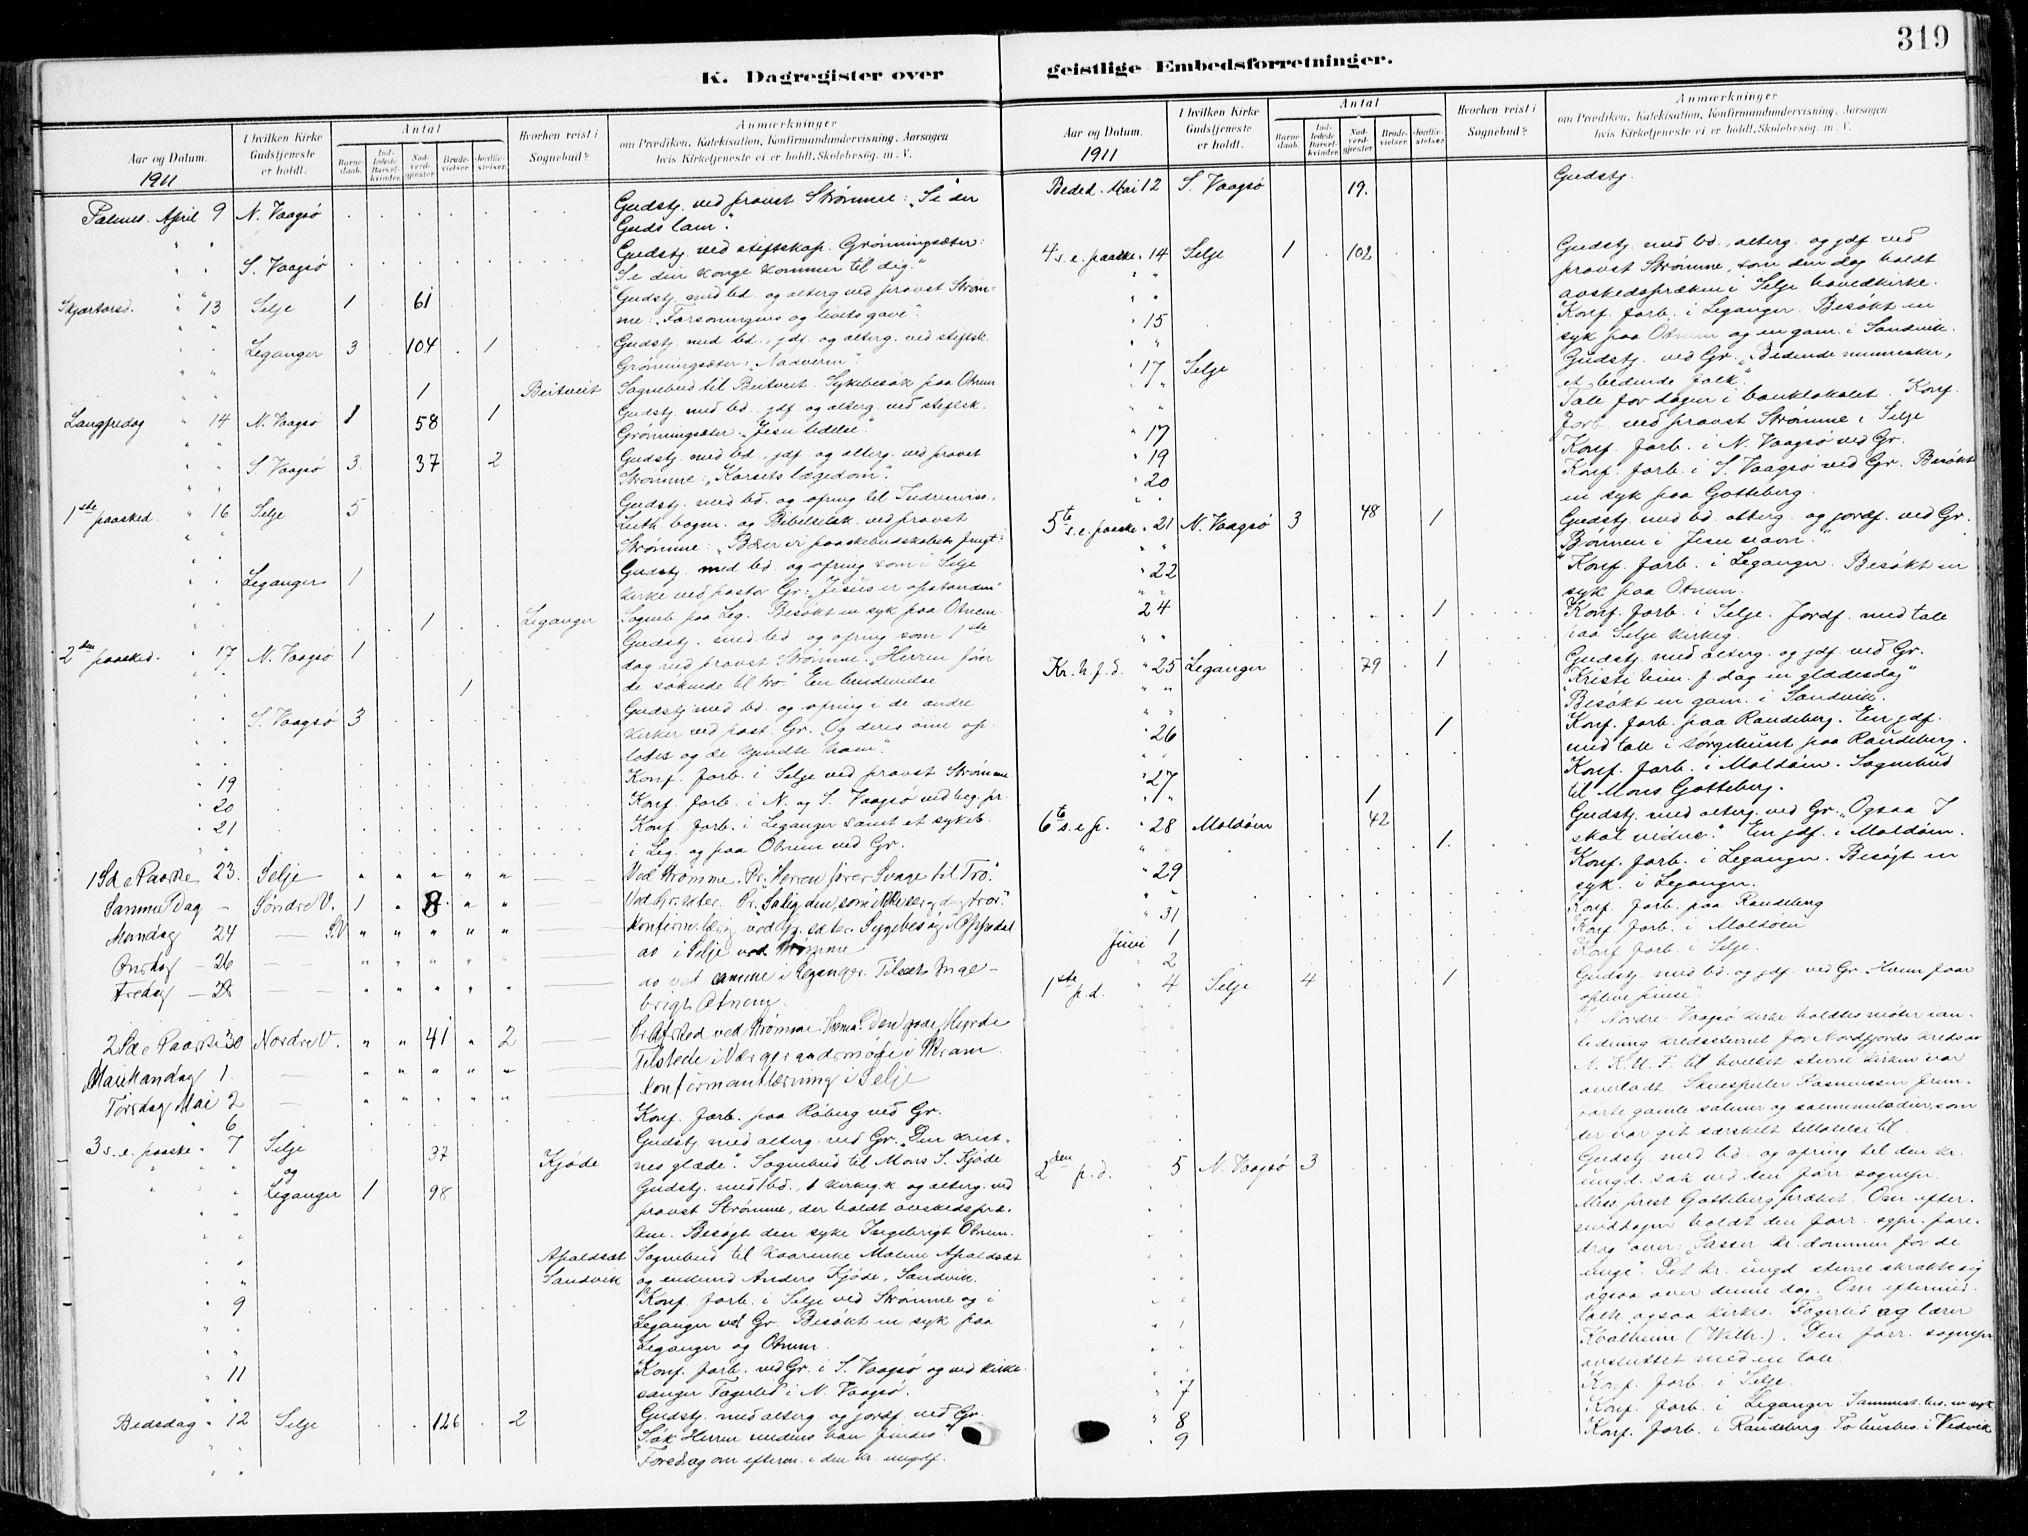 K. Dagregister over
Aar og Datum.
1911
I hvilken Kirke Gudstjeneste er holdt.
Antal
Barne-daab.
Ind-ledede Barsel-kvinder.
Nad-verd-gjester
Brude-vielser
Jordfæ-stelser
Hvorhen reist i Sognebud?
Anmærkninger
om Prædiken, Katekisation, Konfirmandundervisning, Aarsagen
hvis Kirketjeneste ei er holdt, Skolebesøg, m. V.
Palmes. April 9 N. Vaagsø Gudstj. ved provst Strømme: „Se der
Guds lam".
S. Vaagsø Gudstj. ved stiftskap. Grønningsæter:
„Se din konge kommer til dig."
Skjærtorsd. 13 Selje 1 61 Gudstj. med bd. og alterg. ved provst Strøm-
me: „Forsoningens og livets gave".
Leganger 3 104 1 Gudstj. med bd., jdf. og alterg. ved stiftsk.
Grønningsæter: „Nadveren".
1 Beitveit Sognebud til Beitveit. Sykebesøk paa Otnem
Langfredag 14 N. Vaagsø 1 58 1 Gudstj. med bd., jdf. og alterg. ved stiftsk.
Grønningsæter: „Jesu lidelse".
S. Vaagsø 3 37 2 Gudstj. med bd., jdf. og alterg. ved provst
Strømme: „Korsets lægedom".
1ste paasked. 16 Selje 5 Gudstj. med bd. og ofring til Indremiss.
Luth. bogm. og Bibelselsk. ved provst
Strømme: „Bær vi paaskebudskabets frugt?
Leganger 1 Gudstj. med bd. og ofring som i Selje
kirke ved pastor Gr: „Jesus er opstanden"
1 Leganger Sogneb. paa Leg. Besøkt en syk paa Otnem.
2den paasked. 17 N. Vaagsø 1 Gudstj. med bd. og ofring som 1ste
dag ved provst Strømme. „Herren fører
1 de søkende til tro." En brudevielse
S. Vaagsø 3 Gudstj. med bd. og ofring i de andre
kirker ved past. Gr. „Og deres øine op-
lodes og de kjendte ham".
19 Konf. forb. i Selje ved provst Strømme
20 Konf. forb. i N. og S. Vaagsø ved beg. pr.
21 Konf. forb. i Leganger samt et sykeb.
i Leg. og paa Otnem ved Gr.
1 S e Paaske 23. Selje Ved Strømme. Pr. Herren fører Svage til Tro.
Samme Dag Søndre V. 1 8 Ved Gr.sæter. Pr. „Salig den, som ikke ser og dog tror."
Mandag 24 S.V Konfirm.læsning ved Gr.sæter. Sygebesøg i Oppedal
Onsdag 26 do i Selje ved Strømme
Fredag 28 do ved samme i Leganger. Tilsæts Inge-
brigt Otnem.
2 S e Paaske 30 Nordre V. 41 2 Pr. Afsked ved Strømme. Thema: Den gode Hyrde
Mai Mandag 1. Tilstede i Værgeraadsmøde i Skram
Torsdag Mai 2 Konfirmantlæsning i Selje
6 Konf. forb. paa Raberg ved Gr.
3 s. e. paaske 7 Selje 37 Kjøde Gudstj. med alterg. ved Gr. „Den krist-
nes glæde". Sognebud til Mons S. Kjøde
og Leganger 1 98 Gudstj. med 1 bd., 1 kirkeg.k. og alterg. ved
provst Strømme, der holdt avskedspræ-
ken. Besøgt den syke Ingebrigt Otnem.
Apaldsæt Sognebud til Kaarenke Malene Apaldsæt
Sandvik og enkemd Anders Kjøde, Sandvik.
9 Konf. forb. i Selje ved Strømme og i
Leganger ved Gr. Besøkt en syk paa
Leganger og Otnem.
11 Konf. forb. ved Gr. i S. Vaagsø og ved kirke-
sanger Fagerlid i N. Vaagsø.
Bedsdag 12 Selje 126 2 Gudstj. med alterg. og jordf. ved Gr.
„Søk Herren medens han findes".
Foredrag om efterm. i den kr. ungdf.
319
geistlige Embedsforretninger.
Aar og Datum.
1911
I hvilken Kirke Gudstjeneste er holdt.
Antal
Barne-daab.
Ind-ledede Barsel-kvinder.
Nad-verd-gjester
Brude-vielser
Jordfæ-stelser
Hvorhen reist i Sognebud?
Anmærkninger
om Prædiken, Katekisation, Konfirmandundervisning, Aarsagen
hvis Kirketjeneste ei er holdt, Skolebesøg, m. V.
Beded. Mai 12 S. Vaagsø 19. Gudstj.
4 s. e. paaske 14 Selje 1 102 Gudstj. med bd., alterg. og jdf. ved
provst Strømme, som den dag holdt
avskedspræken i Selje hovedkirke.
15 Konf. forb. i Leganger. Besøkt en
syk paa Otnem og en gam. i Sandvik.
17 Selje Gudstj. ved Gr. „Bedende mennesker,
et bedende folk".
Tale for dagen i banklokalet. Konf.
forb. ved provst Strømme i Selje
17 Konf. forb. i N. Vaagsø ved Gr.
19 Konf. forb. i S. Vaagsø ved Gr. Besøkt
20 en syk paa Gotteberg.
5te s. e. paaske 21 N. Vaagsø 3 48 1 Gudstj. med bd. alterg. og jordf. ved Gr.
„Bønnen i Jesu navn."
22 Konf. forb. i Leganger. Besøkt en
syk paa Otnem.
24 1 Konf. forb. i Selje. Jordf. med tale
paa Selje kirkeg.
Kr. h. f. d. 25 Leganger 79 1 Gudstj. med alterg. og jdf. ved Gr.
„Kristi him. f. dag en glædesdag"
Besøkt en gam. i Sandvik.
26 1 Konf. forb. paa Raudeberg. En jdf.
med tale i sørgehuset paa Raudeberg.
27 Konf. forb. i Moldøen. Sognebud
1 til Mons Gotteberg.
6te s. e. p. 28 Moldøen 42 Gudstj. med alterg. ved Gr. „Ogsaa I
1 skal vidne." En jdf. i Moldøen.
29 Konf. forb. i Leganger. Besøgt en
syk. i Leganger.
31 Konf. forb. paa Raudeberg
Juni 1 Konf. forb. i Moldøen
2 Konf. forb. i Selje.
1ste p. d. 4 Selje 4 1 Gudstj. med bd. og jdf. ved Gr. „Hvem faar
opleve pinse"
I Nordre Vaagsø kirke holdtes møter i an-
ledning kredsstevnet for Nordfjords kreds av
N. K. U. F. til hvilket stevne kirken var
overladt. Skuespiller Rasmussen frem-
førte gamle salmer og salmemelodier, som
der var git særskilt tilladelse til.
2den p. d. 5 N. Vaagsø 3 Gudstj. med bd. og ofring til den kr.
ungd. sak ved den forr. sognepr.
Miss. prest Gotteberg præket. Om efter-
middagen holdt den forr. sgpr. fore-
drag over: „Passer kr.dommen for de
unge". Det kr. ungd. stevne strakte sig
ogsaa over denne dag. Om eftermid.
talte ogsaa kirkes. Fagerlid og lærer
Kvalheim (Wilh.). Den forr. sognepr
avsluttet med en tale.
7 Konf. forb. i Selje.
8 Konf. forb. i Leganger. Sammest. bes. en syk
9 Konf. forb. i Raudeberg. To husbes. i Vedvik